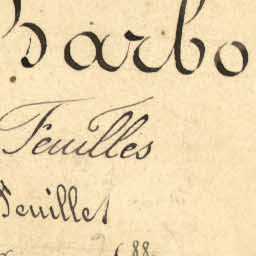 Barbo
Feuilles
Feuillet
88